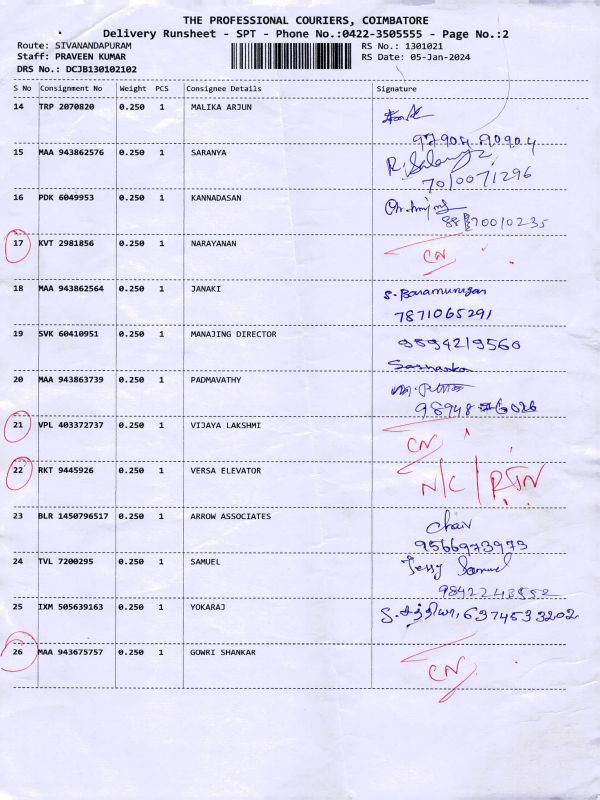 THE PROFESSIONAL COURIERS, COIMBATORE
Delivery Runsheet - SPT - Phone No.:0422-3505555 - Page No.:2
Route: SIVANANDAPURAM RS No.: 1301021
Staff: PRAVEEN KUMAR RS Date: 05-Jan-2024
DRS No.: DCJB130102102
S No Consignment No Weight PCS Consignee Details Signature
14 TRP 2070820 0.250 1 MALIKA ARJUN
97904 90904
15 MAA 943862576 0.250 1 SARANYA
7010071296
16 PDK 6049953 0.250 1 KANNADASAN
17 KVT 2981856 0.250 1 NARAYANAN
CN
18 MAA 943862564 0.250 1 JANAKI S. Baramurugan
7871065291
19 SVK 60410951 0.250 1 MANAJING DIRECTOR 9894219560
20 MAA 943863739 0.250 1 PADMAVATHY
21 VPL 403372737 0.250 1 VIJAYA LAKSHMI
CN
22 RKT 9445926 0.250 1 VERSA ELEVATOR N/C / RTN
23 BLR 1450796517 0.250 1 ARROW ASSOCIATES
9566973973
24 TVL 7200295 0.250 1 SAMUEL Jessy Samuel
25 IXM 505639163 0.250 1 YOKARAJ S. சத்தியா, 6374533202
26 MAA 943675757 0.250 1 GOWRI SHANKAR
CN